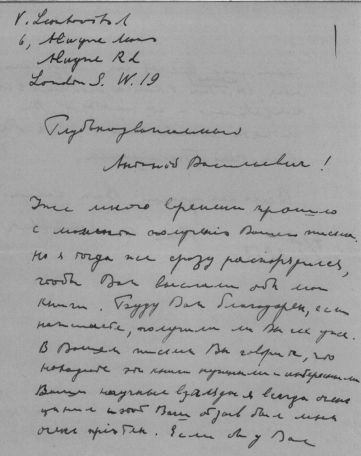 V. Leontovitsch
6, Alwyne Mans
Alwyne Rd
London S.W. 19
Глубокоуважаемый
Антоний Васильевич!
Уже много времени прошло
с момента получения Вашего письма.
но я тогда же сразу распорядился,
чтобы Вам выслали обе мои
книги. Буду Вам благодарен, если
напишете, получили ли Вы их уже.
В Вашем письме Вы говорите, что
находите эти книги нужными и интересными
Ваши научные взгляды я всегда очень
ценил и этот Ваш отзыв был мне
очень приятен. Если бы у Вас